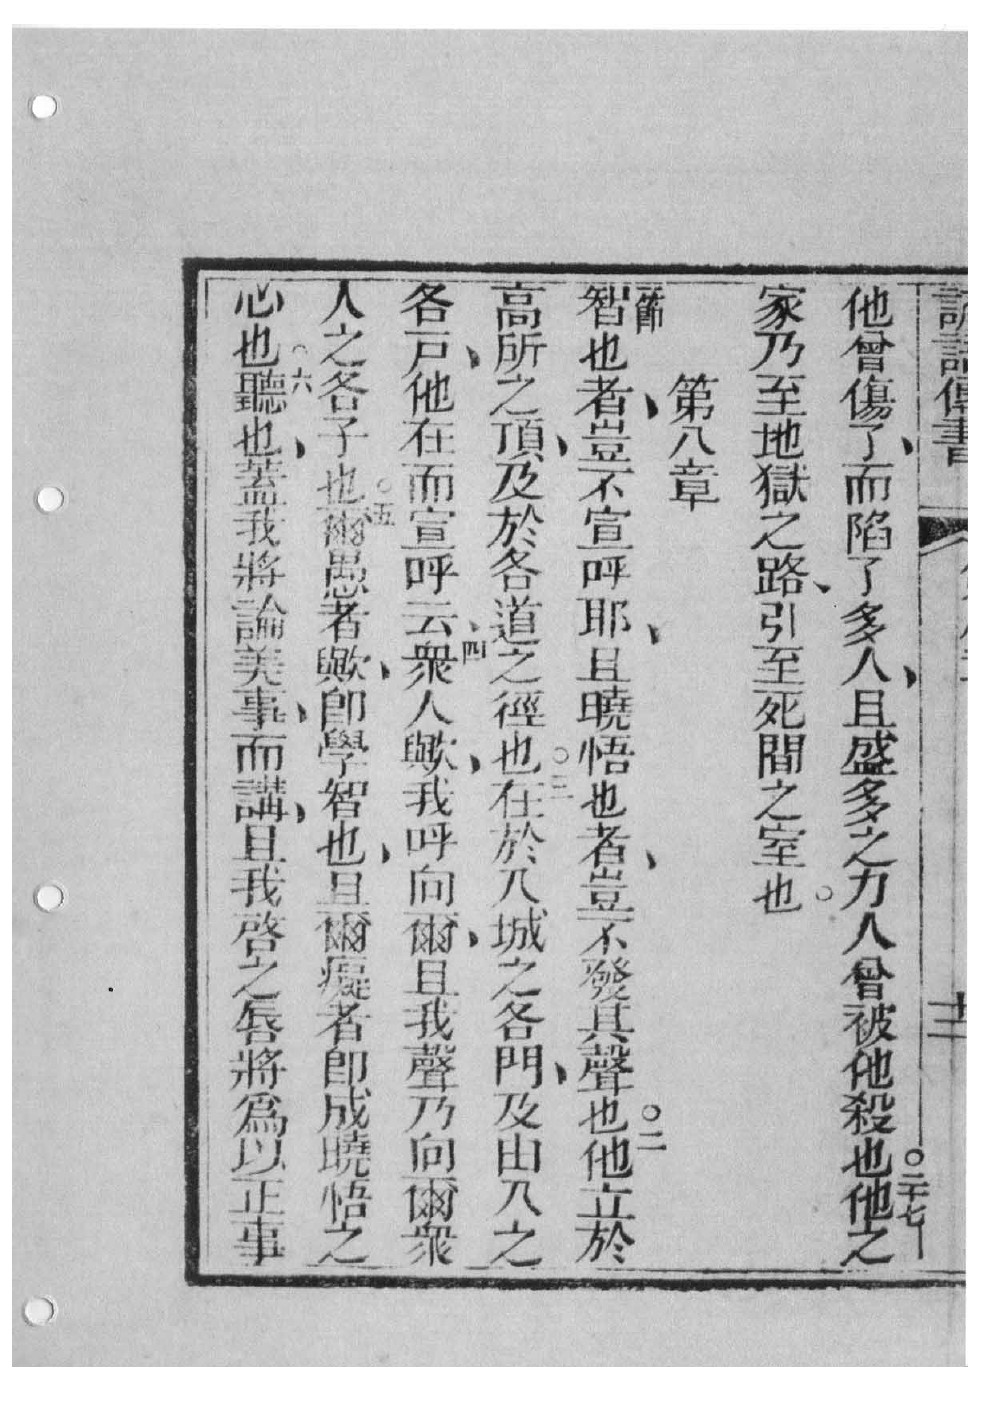 他曾傷了、而陷了多人、且盛多之力人曾被他殺也。二十七他之
家乃至地獄之路、引至死間之室也。
第八章
節智也者、豈不宣呼耶、且曉悟也者、豈不發其聲也。二他立於
高所之頂、及於各道之徑也。三在於入城之各門、及由入之
各戸、他在而宣呼云、四衆人歟、我呼向爾、且我聲乃向爾衆
人之各子也。五爾愚者歟、卽學智也、且爾癡者卽成曉悟之
心也。六聽也、蓋我將論美事、而講、且我啓之唇將爲以正事